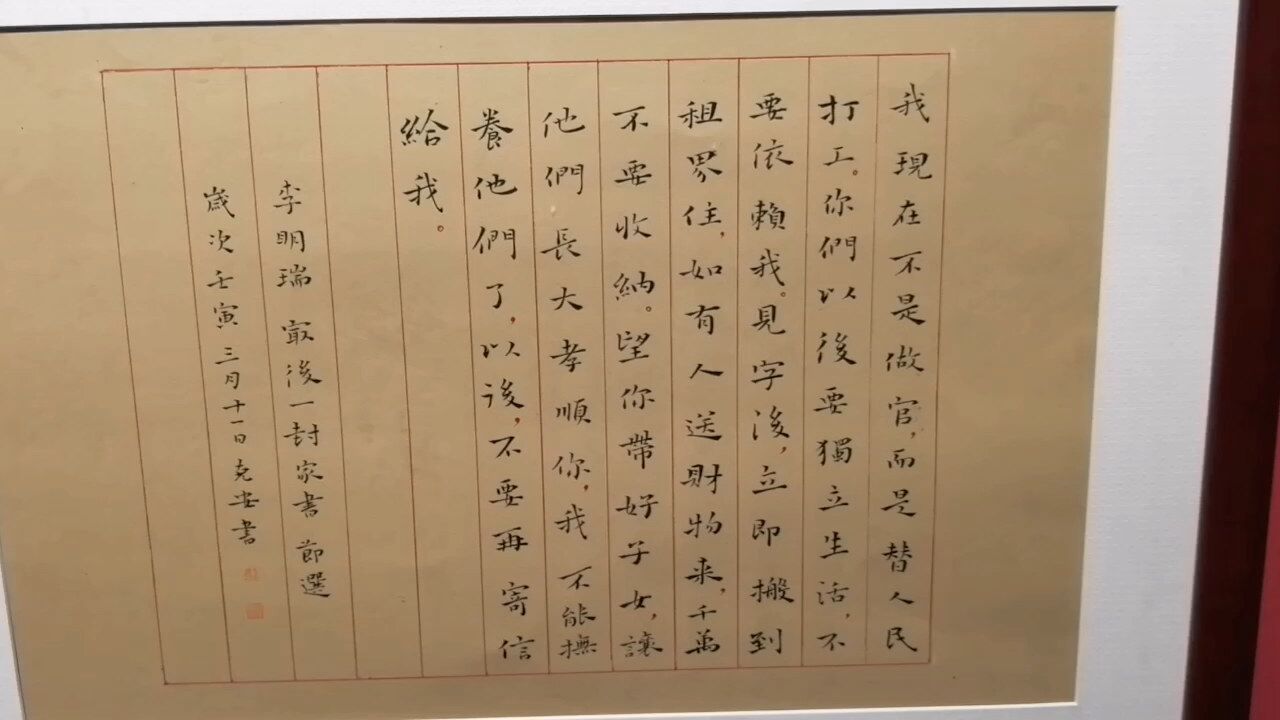 我現在不是做官，而是替人民
打工。你們以後要獨立生活，不
要依賴我。見字後，立即搬到
租界住，如有人送財物来，千萬
不要收納。望你帶好子女，讓
他們長大孝順你，我不能撫
養他們了，以後，不要再寄信
給我。
李明瑞 最後一封家書 節選
歲次壬寅三月十一日克安書